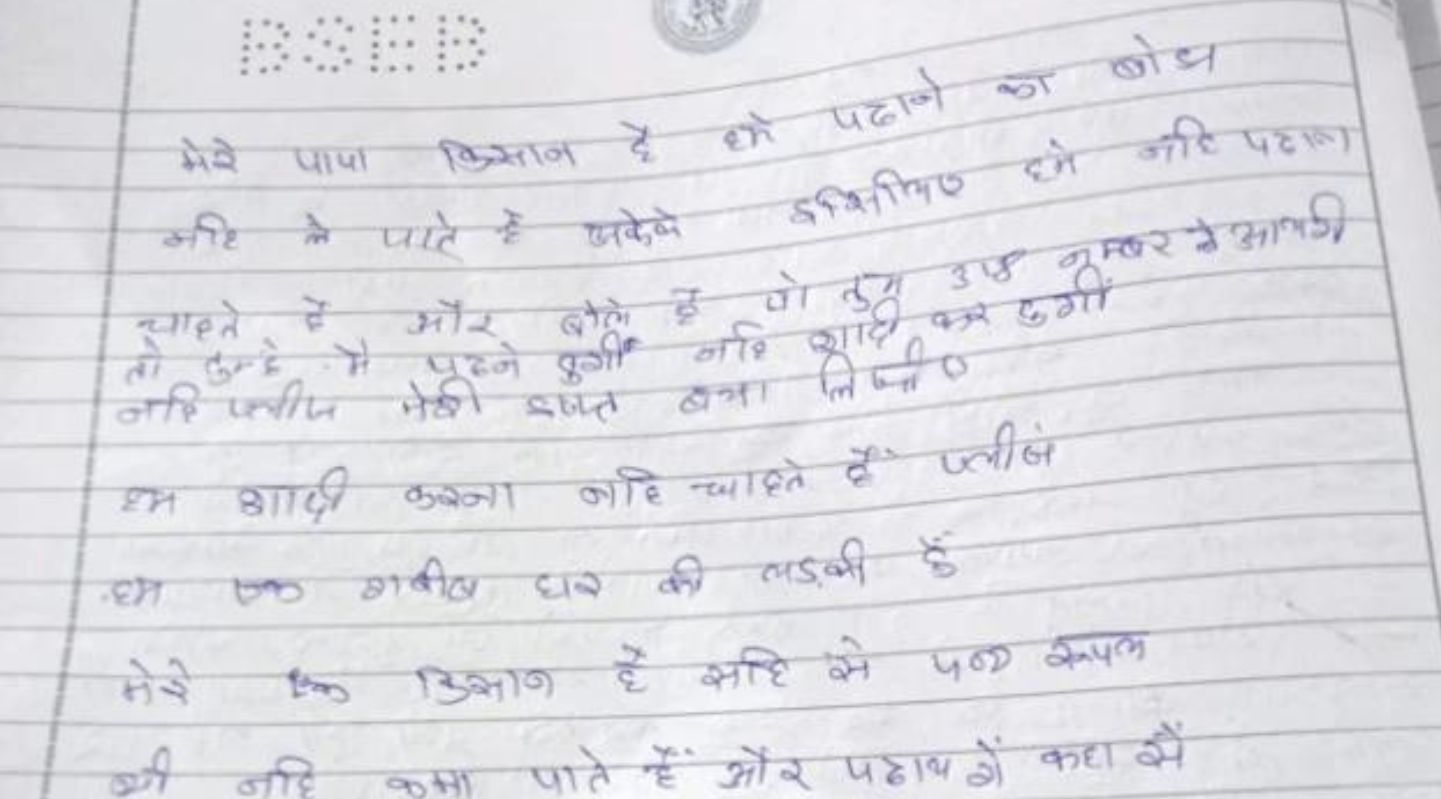 BSEB
मेरे पापा किसान है हमे पढाने का बोझ
नहि ले पाते है इसिलिए हमे नहि पढाना
चाहते है और बोले है जो तुम उाछ नम्बर से आयगी
तो तुम्हे मै पढने दुगीं नहि शादी कर दुगीं
नहि प्लीज मेरी इजत बचा लिजीए
हम शादी करना नहि चाहते हैं प्लीजं
हम एक गरीब घर की लडकी हैं
मेरे एक किसान है सहि से
भी नहि कमा पाते हैं और पढाय गें कहा सें